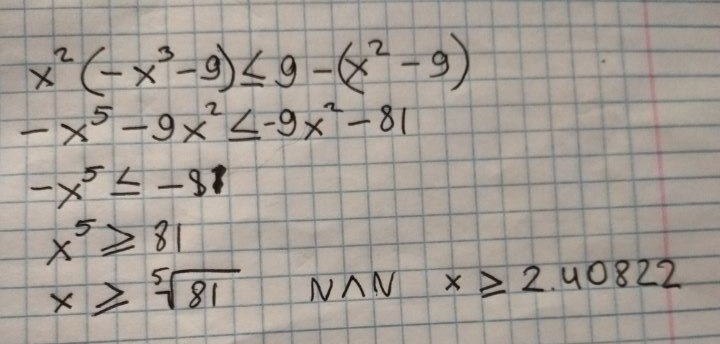 x²(-x³-9)≤9-(x²-9)
-x⁵-9x²≤-9x²-81
-x⁵≤-81
x⁵≥81
x≥⁵√81 NΛN x≥2.40822